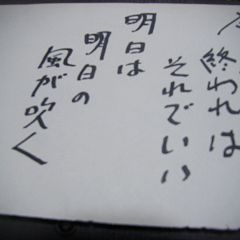 終われば
それでいい
明日は
明日の
風が吹く